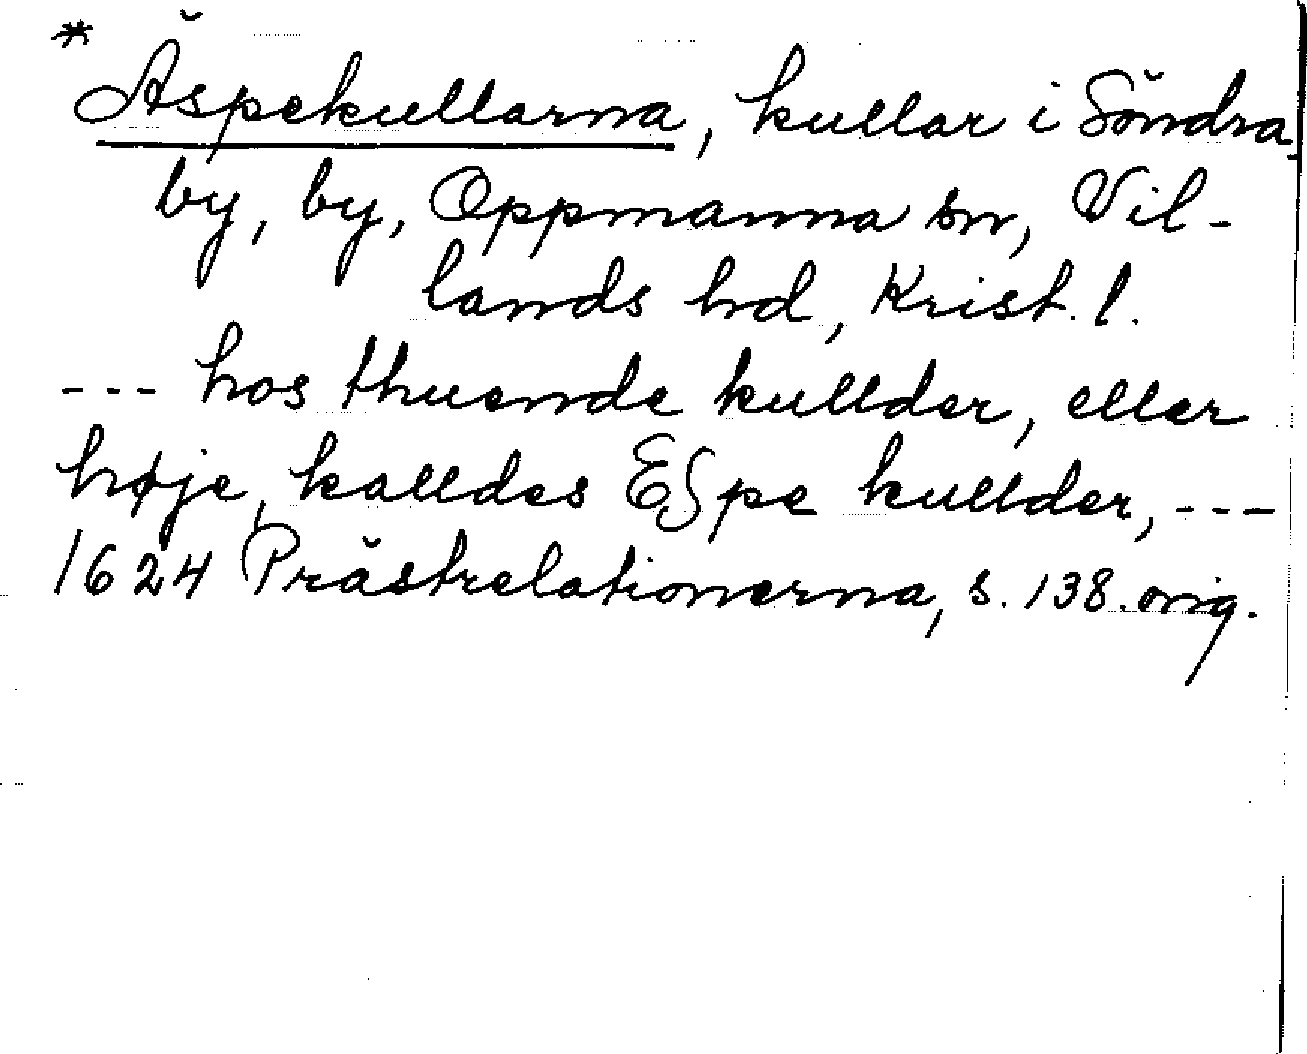 * Äspekullarna, kullar i Söndra
by, by, Oppmanna sn, Vil-
lands hd, Krist. l.
--- hos thuende kullder, eller
høje, kalldes ESpe kullder, ---
1624 Prästrelationerna, s. 138. orig.